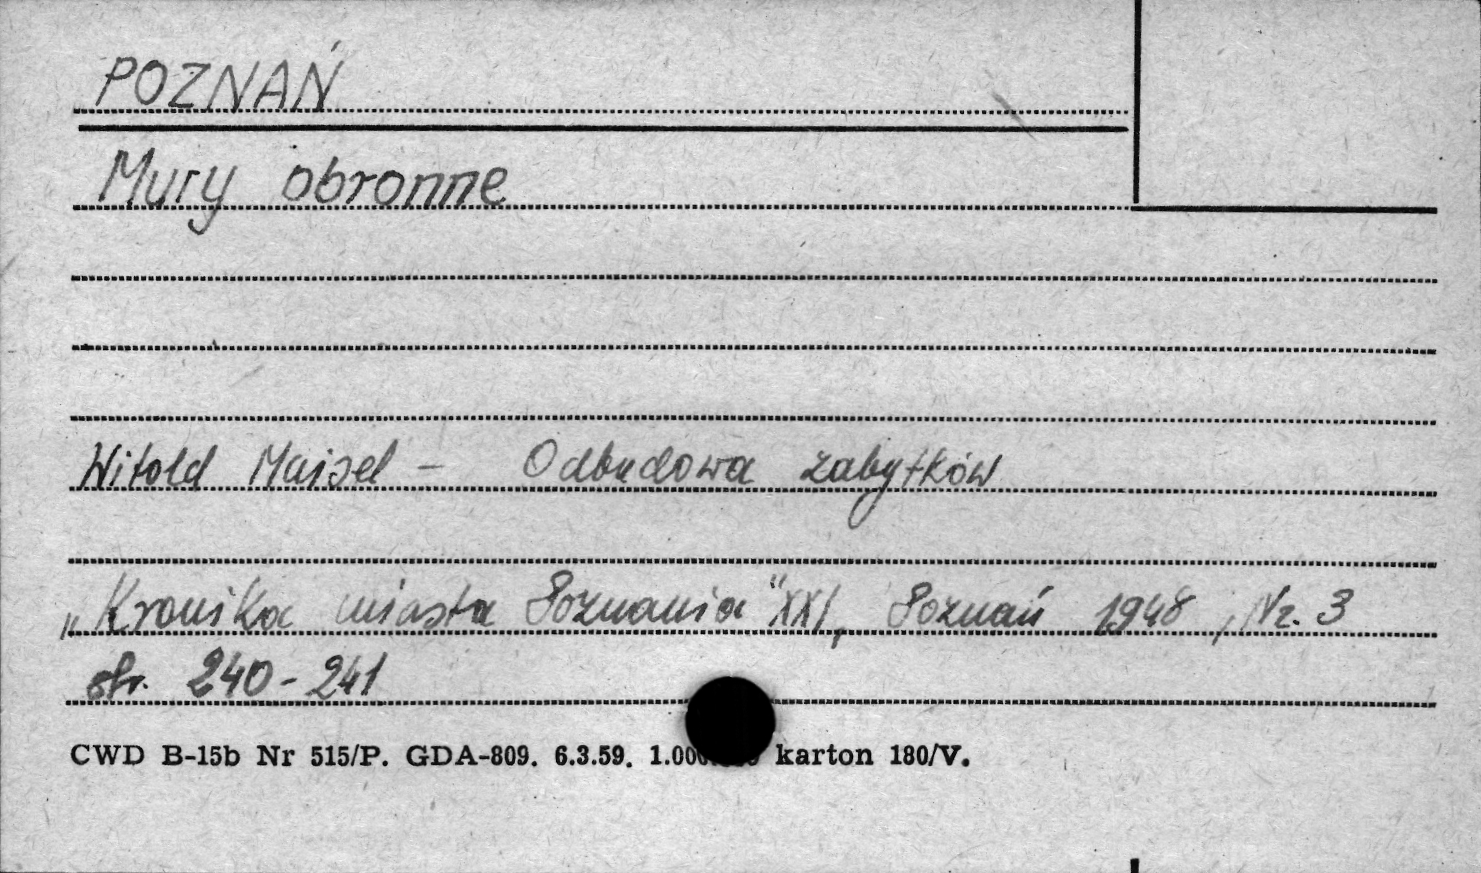 POZNAŃ
Mury obronne
Witold Maisel - Odbudowa zabytków
„Kronika miasta Poznania" XXI, Poznań 1948, Nr. 3
str. 240-241
CWD B-15b Nr 515/P. GDA-809. 6.3.59. karton 180/V.